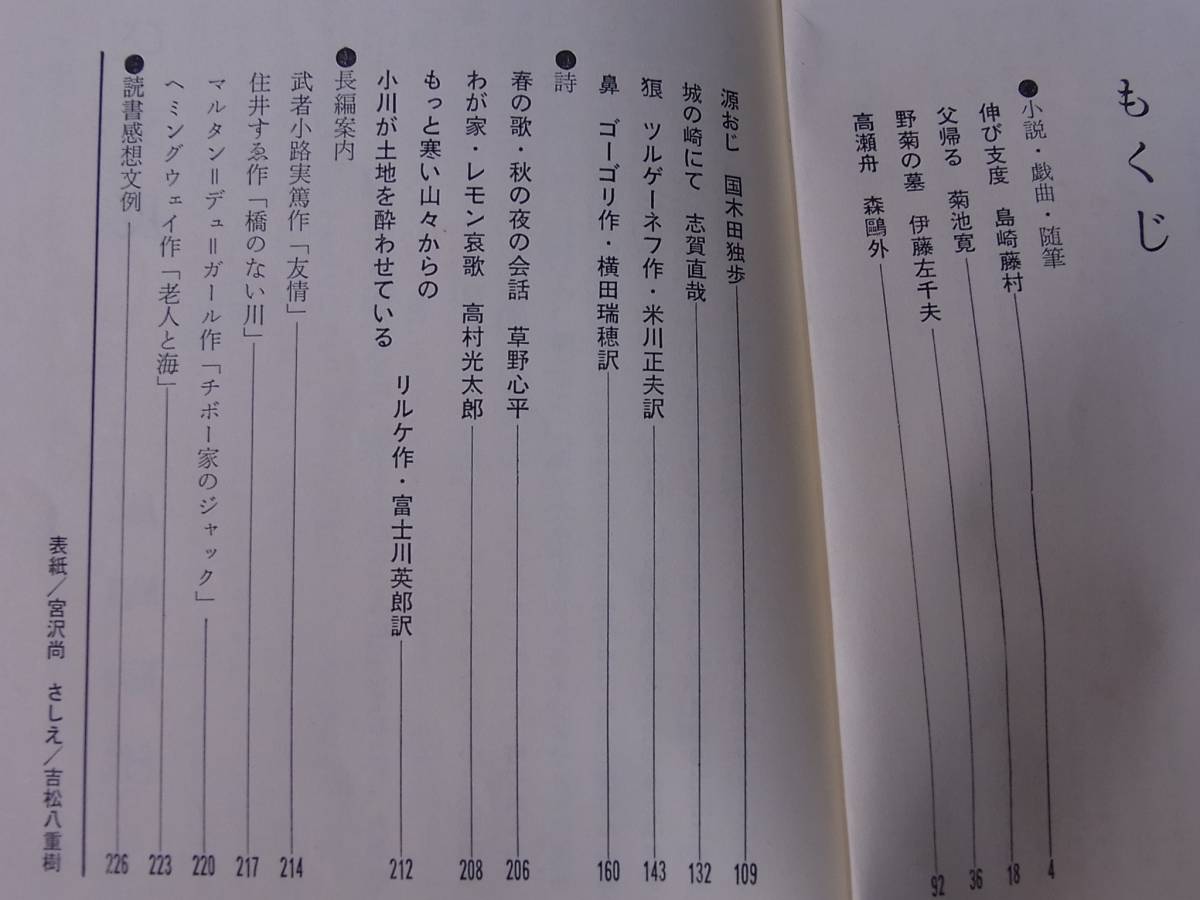 もくじ
●小説・戯曲・随筆
伸び支度 島崎藤村 4
父帰る 菊池寛 18
野菊の墓 伊藤左千夫 36
高瀬舟 森鷗外 92
源おじ 国木田独歩 109
城の崎にて 志賀直哉 132
狼 ツルゲーネフ作・米川正夫訳 143
鼻 ゴーゴリ作・横田瑞穂訳 160
●詩
春の歌・秋の夜の会話 草野心平 206
わが家・レモン哀歌 高村光太郎 208
もっと寒い山々からの
小川が土地を酔わせている
リルケ作・富士川英郎訳 212
●長編案内
武者小路実篤作「友情」 214
住井すゑ作「橋のない川」 217
マルタン＝デュ＝ガール作「チボー家のジャック」 220
ヘミングウェイ作「老人と海」 223
●読書感想文例 226
表紙／宮沢尚 さしえ／吉松八重樹